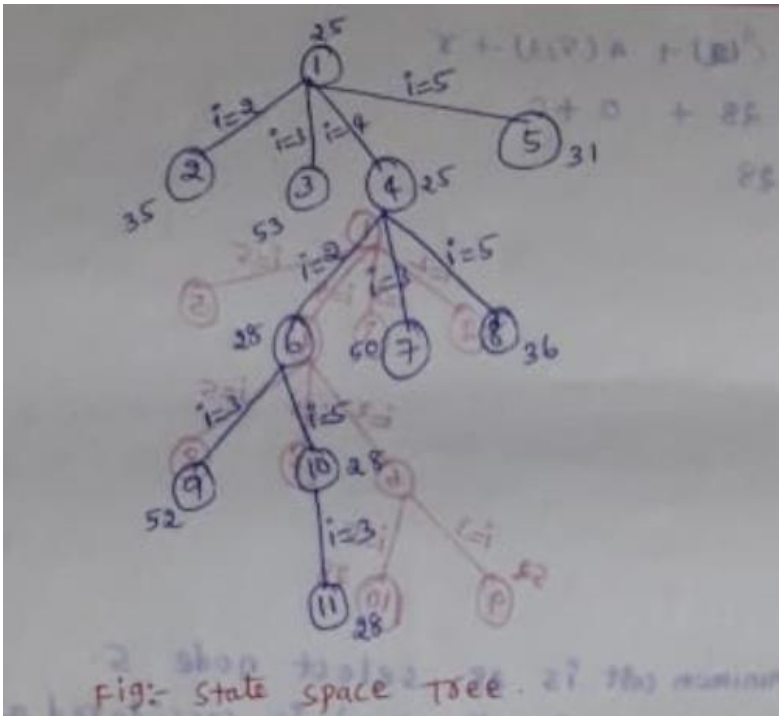 25
1
i=2 i=3 i=4 i=5
2 3 4 5
35 53 25 31
i=2 i=3 i=5
28 6 50 7 8 36
i=3 i=5
9 10 28
52
i=3
11
28
Fig:- State Space Tree.